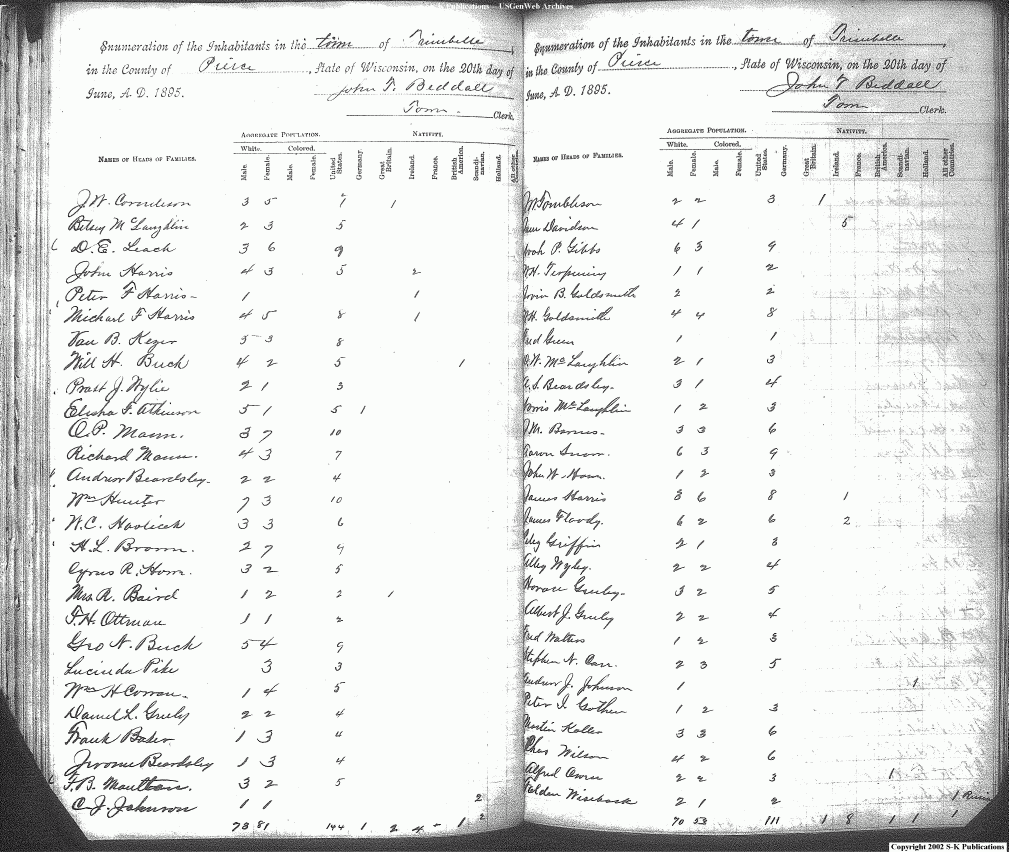 S-K Publications - USGenWeb Archives
Enumeration of the Inhabitants in the town of Trimbelle,
in the County of Pierce, State of Wisconsin, on the 20th day of
June, A. D. 1895. John F. Beddall
Town Clerk.
AGGREGATE POPULATION. NATIVITY.
White. Colored.
NAMES OF HEADS OF FAMILIES. Male. Female. Male. Female. United States. Germany. Great Britain. Ireland. France. British America. Scandinavian. Holland. All other
J. W. 3 5 7 1
Betsy McLaughlin 2 3 5
D. E. Leach 3 6 9
John Harris 4 3 5 2
Peter F Harris 1 1
Michael F Harris 4 5 8 1
Van B. 5 3 8
Will H. Buck 4 2 5 1
Pratt J. Wylie 2 1 3
Elisha F. Atkinson 5 1 5 1
O. P. Mann. 3 7 10
Richard Mann. 4 3 7
Andrew Beardsley. 2 2 4
Wm Hunter 7 3 10
W. C. 3 3 6
H. L. Brown. 2 7 9
Cyrus R. Horn. 3 2 5
Mrs R. Baird 1 2 2 1
F. H. Ottman 1 1 2
Geo N. Buck 5 4 9
Lucinda Pike 3 3
Wm H Cowan. 1 4 5
Daniel L. 2 2 4
Frank Baker 1 3 4
Jerome Beardsley 1 3 4
F. B. Moulton. 3 2 5
C. J. Johnson 1 1 2
73 81 144 1 2 4 - 1 2
Enumeration of the Inhabitants in the town of Trimbelle,
in the County of Pierce, State of Wisconsin, on the 20th day of
June, A. D. 1895. John F Beddall
Town Clerk.
AGGREGATE POPULATION. NATIVITY.
White. Colored.
NAMES OF HEADS OF FAMILIES. Male. Female. Male. Female. United States. Germany. Great Britain. Ireland. France. British America. Scandinavian. Holland. All other Countries.
Tombleson 2 2 3 1
Davidson 4 1 5
P. Gibbs 6 3 9
H. Terpening 1 1 2
B. Goldsmith 2 2
H. Goldsmith 4 4 8
Fred Green 1 1
W. McLaughlin 2 1 3
S. Beardsley. 3 1 4
McLaughlin 1 2 3
J. M. Barnes. 3 3 6
Aaron Snow. 6 3 9
John W. 1 2 3
James Harris 3 6 8 1
James Floody. 6 2 6 2
Griffin 2 1 3
Wyley. 2 2 4
Horace 3 2 5
Albert J. 2 2 4
Fred Watters 1 2 3
Stephen N. Carr. 2 3 5
Andrew J. Johnson 1 1
Peter I. 1 2 3
Martin Koller 3 3 6
Chas Wilson 4 2 6
Alfred 2 2 3 1
2 1 2 1
70 53 111 1 8 1 1 1
Copyright 2002 S-K Publications